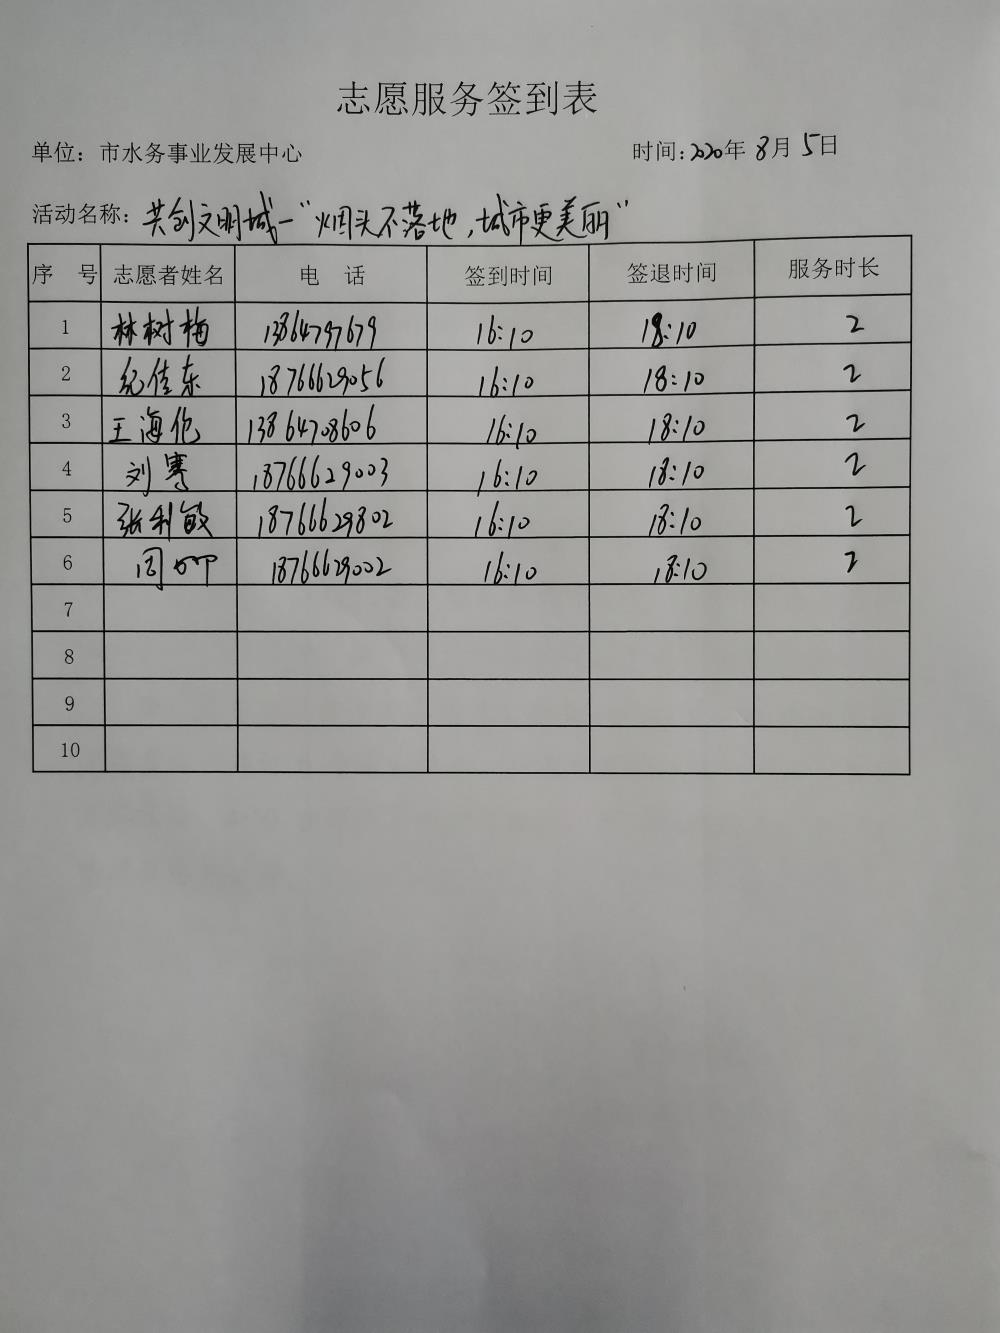 志愿服务签到表
单位：市水务事业发展中心 时间：2020年8月5日
活动名称：共创文明城—“烟头不落地，城市更美丽”
序 号 志愿者姓名 电 话 签到时间 签退时间 服务时长
1 林树梅 13864797679 16:10 18:10 2
2 纪佳东 18766629056 16:10 18:10 2
3 王海伦 13864708606 16:10 18:10 2
4 刘骞 18766629003 16:10 18:10 2
5 张利敏 18766629802 16:10 18:10 2
6 周 18766629002 16:10 18:10 2
7
8
9
10